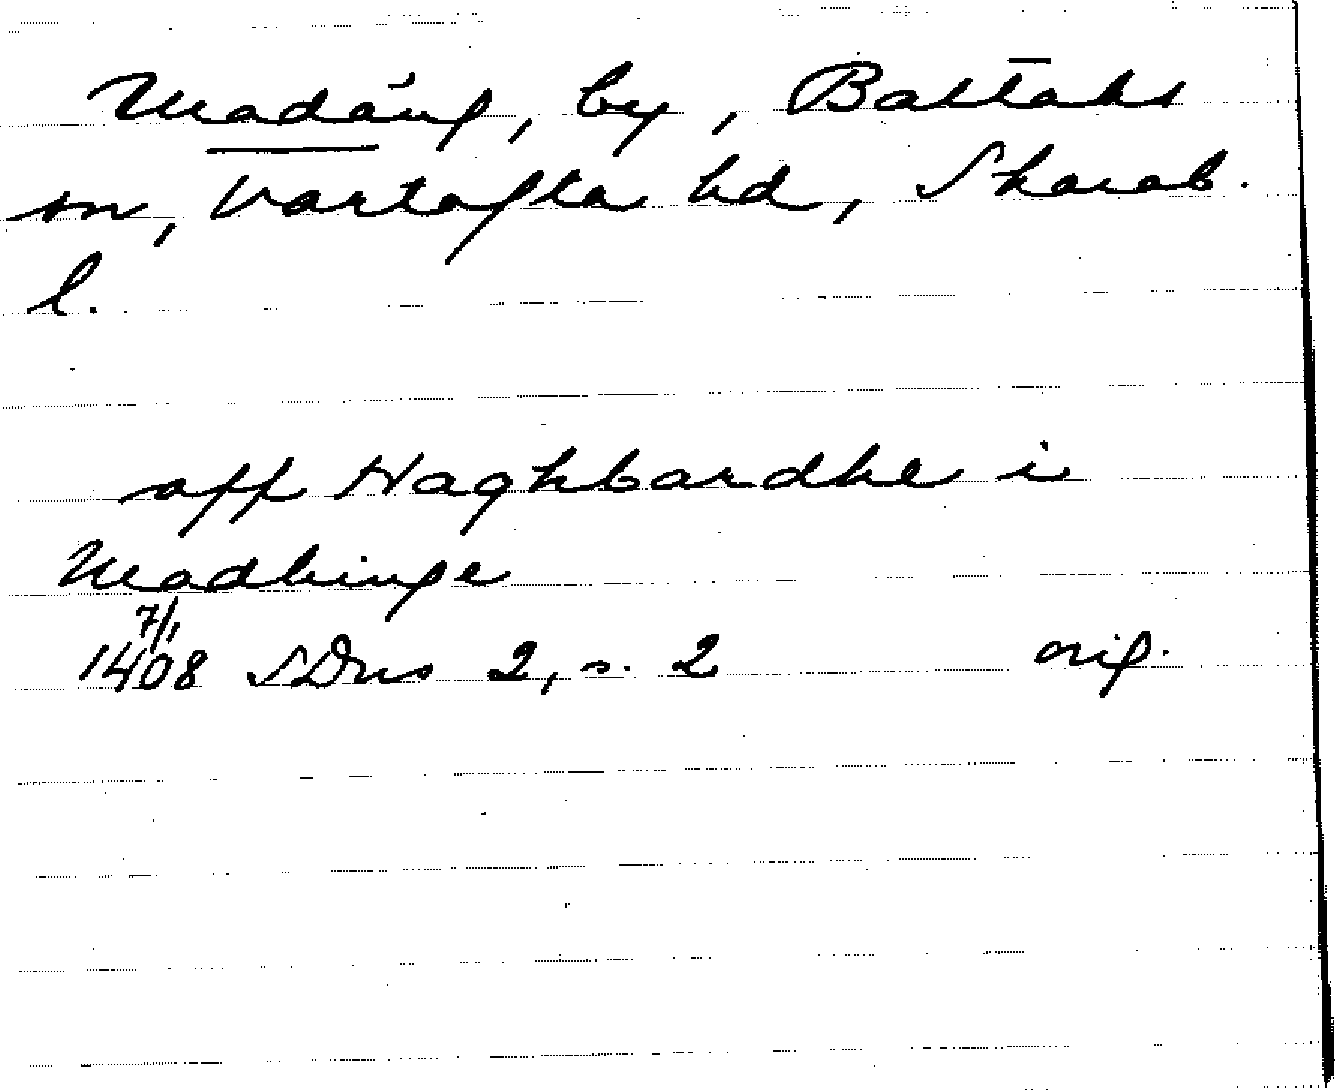 Madäng, by, Baltaks
sn, Vartofta hd, Skarab.
l.
aff Haghbardhe i
Madhinge
7/1
1408 SDns 2, s. 2 orig.